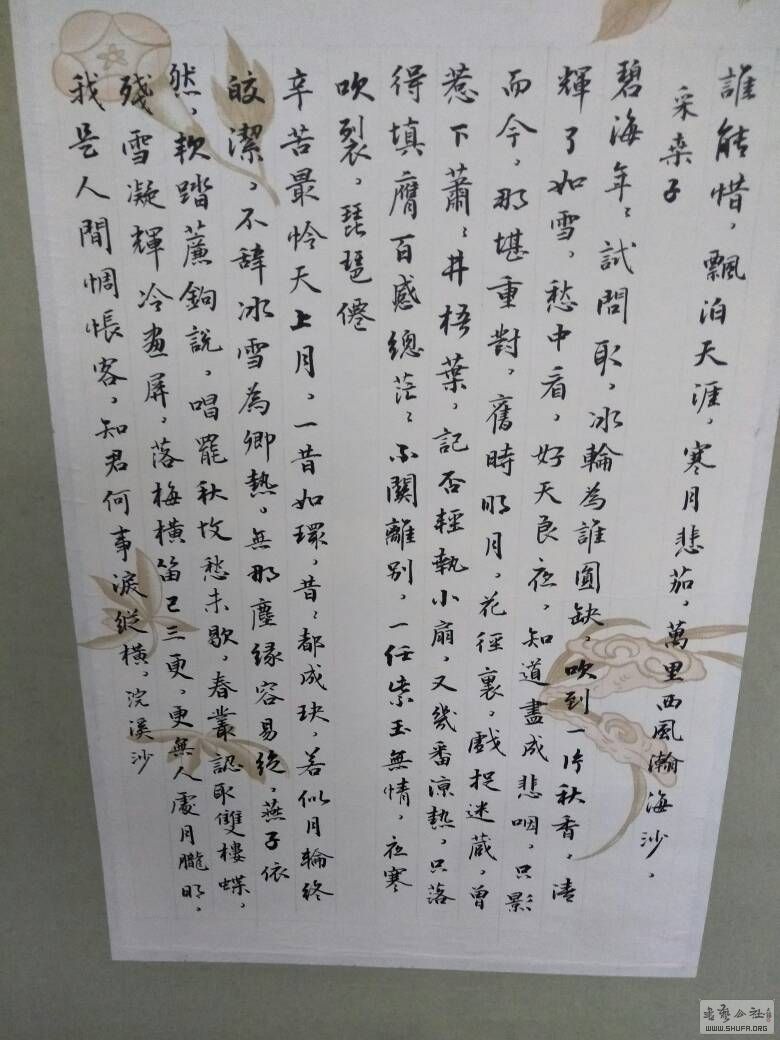 誰能惜，飄泊天涯，寒月悲茄，萬里西風瀚海沙，
采桑子
碧海年〻，試問取，冰輪為誰圓缺，吹到一片秋香，清
輝了如雪，愁中看，好天良夜，知道盡成悲咽，只影
而今，那堪重對，舊時明月，花徑裏，戲捉迷藏，曾
惹下蕭〻井梧葉，記否輕執小扇，又幾番涼熱，只落
得填膺百感總茫〻，不關離別，一任紫玉無情，夜寒
吹裂，琵琶僊
辛苦最怜天上月，一昔如環，昔〻都成玦，若似月輪終
皎潔，不辞冰雪為卿熱，無那塵缘容易绝，燕子依
然，軟踏簾鉤說，唱罷秋墳愁未歇，春叢認取雙棲蝶，
殘雪凝輝冷畫屏，落梅橫笛已三更，更無人處月朧明，
我是人間惆悵客，知君何事淚縱橫，浣溪沙
書藝公社
WWW.SHUFA.ORG